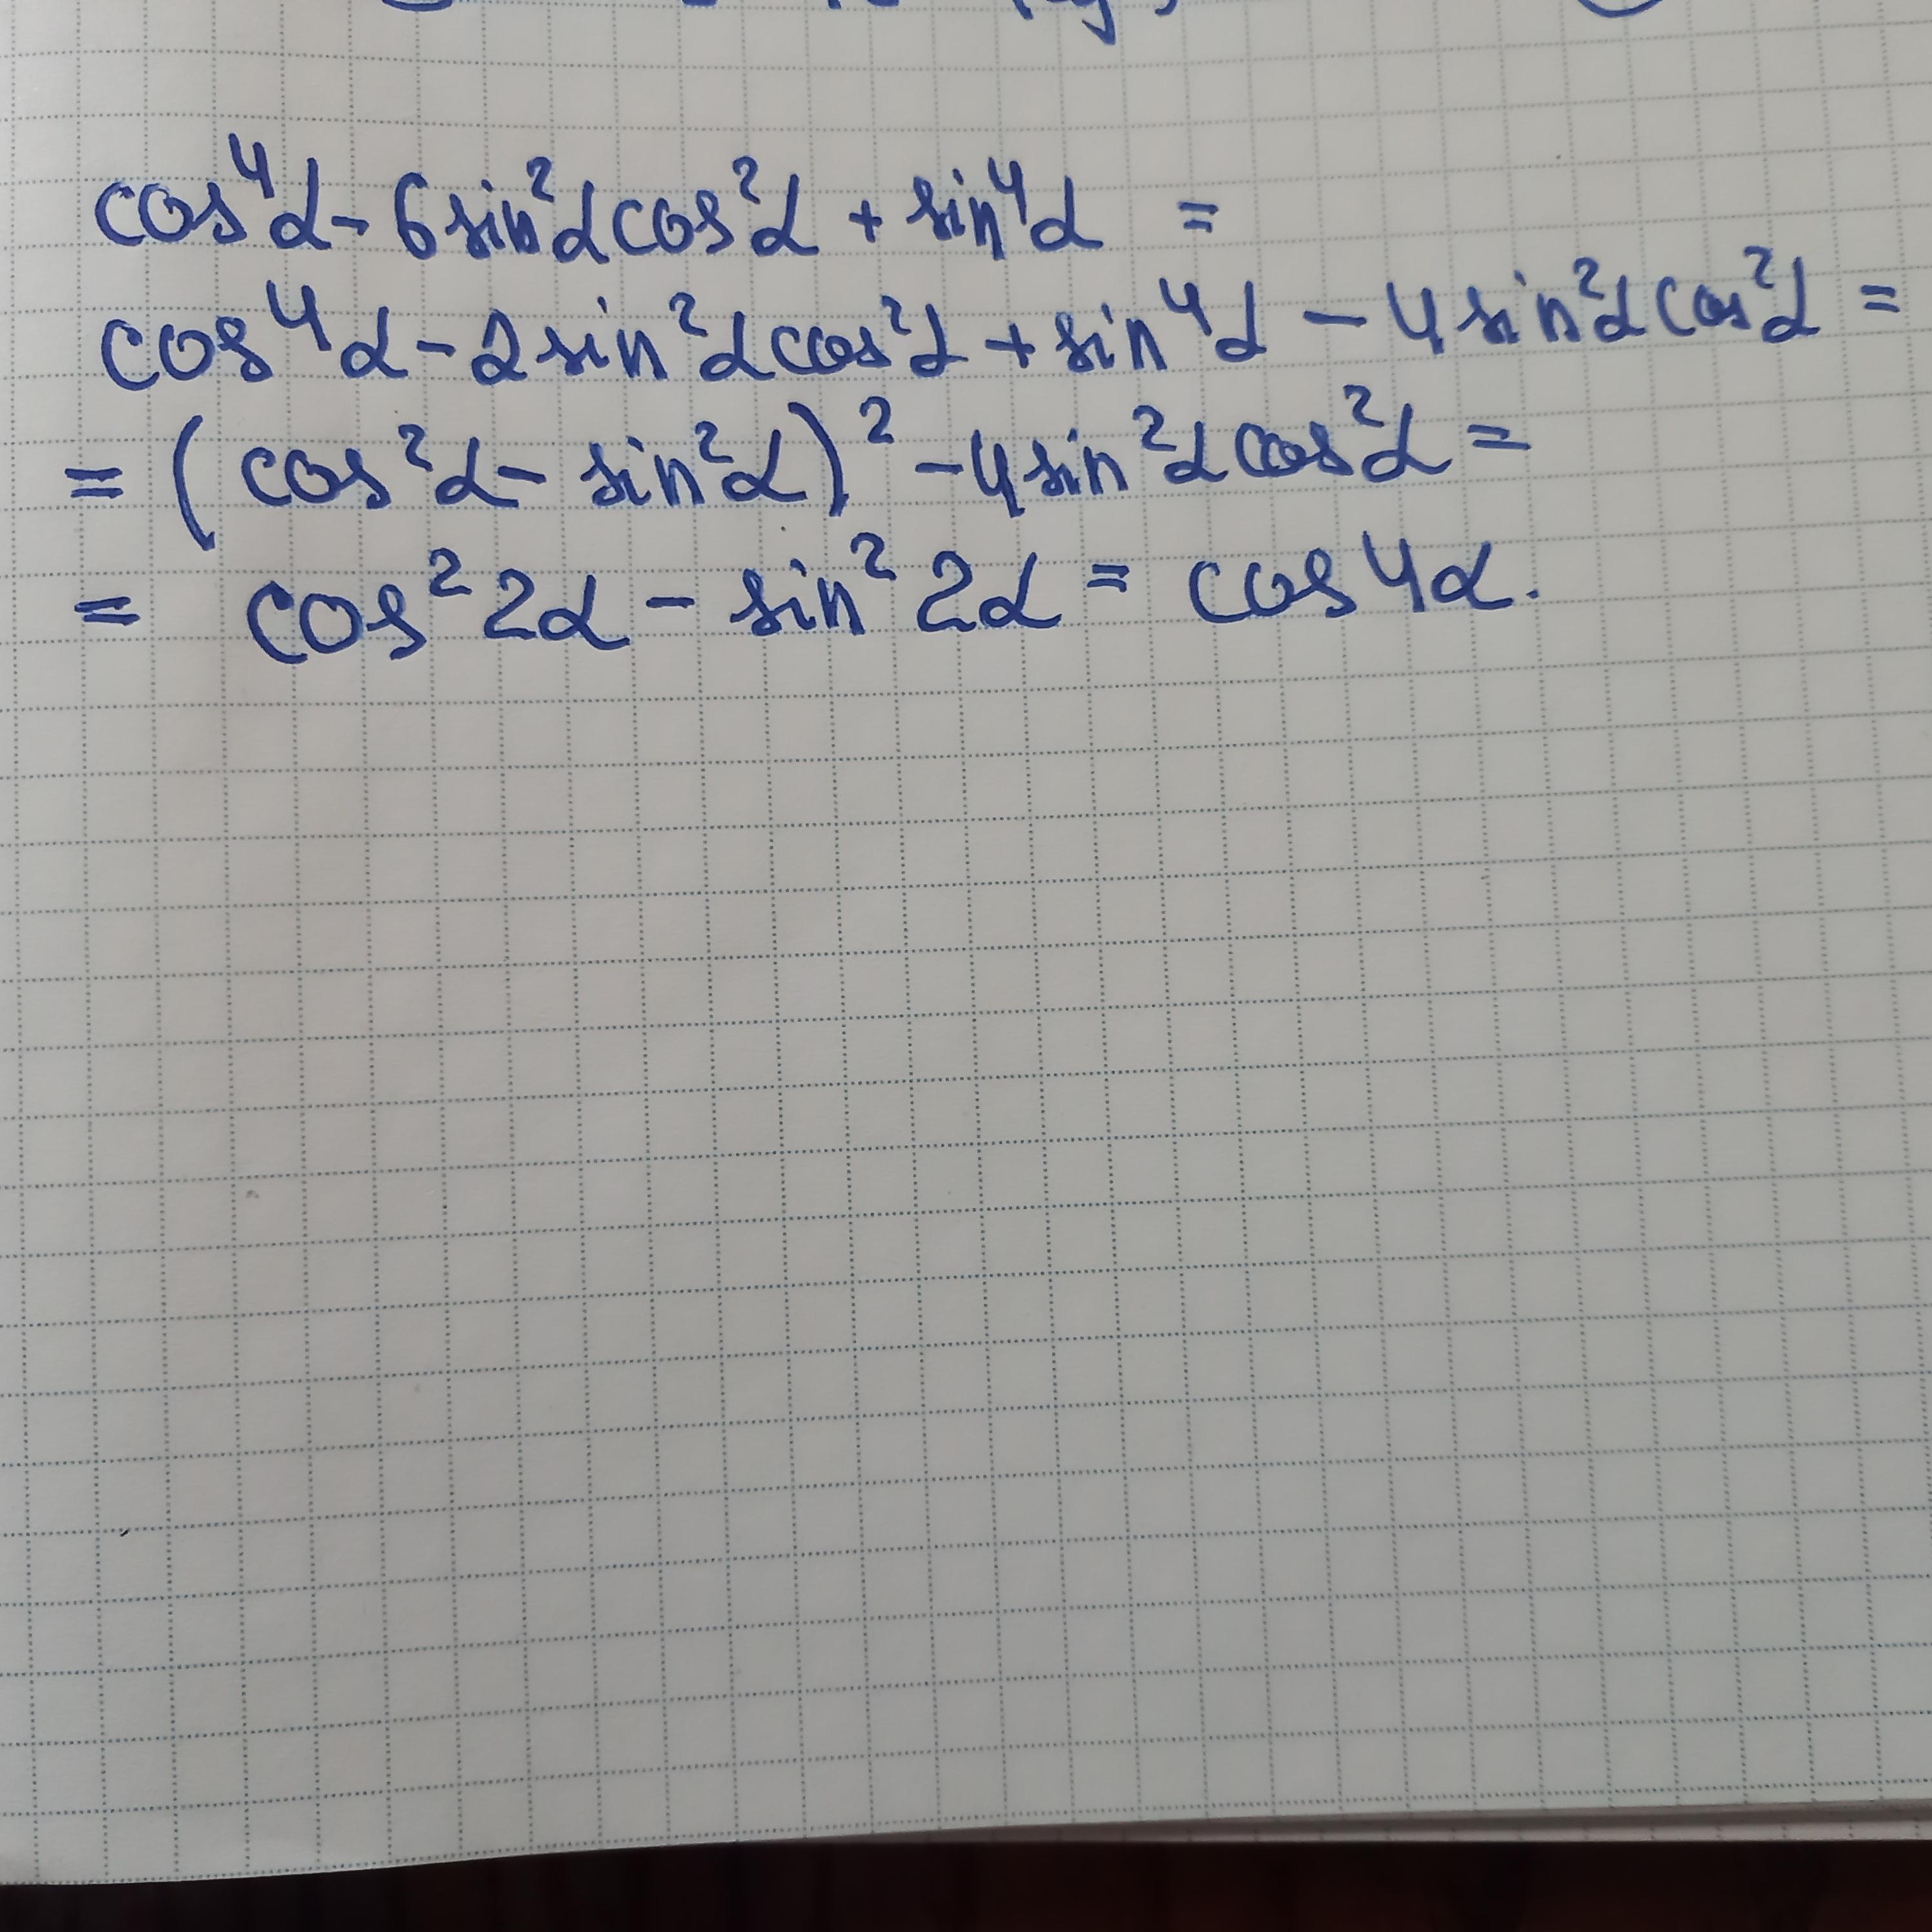 cos⁴α - 6sin²αcos²α + sin⁴α =
cos⁴α - 2sin²αcos²α + sin⁴α - 4sin²αcos²α =
= (cos²α - sin²α)² - 4sin²αcos²α =
= cos²2α - sin²2α = cos4α.